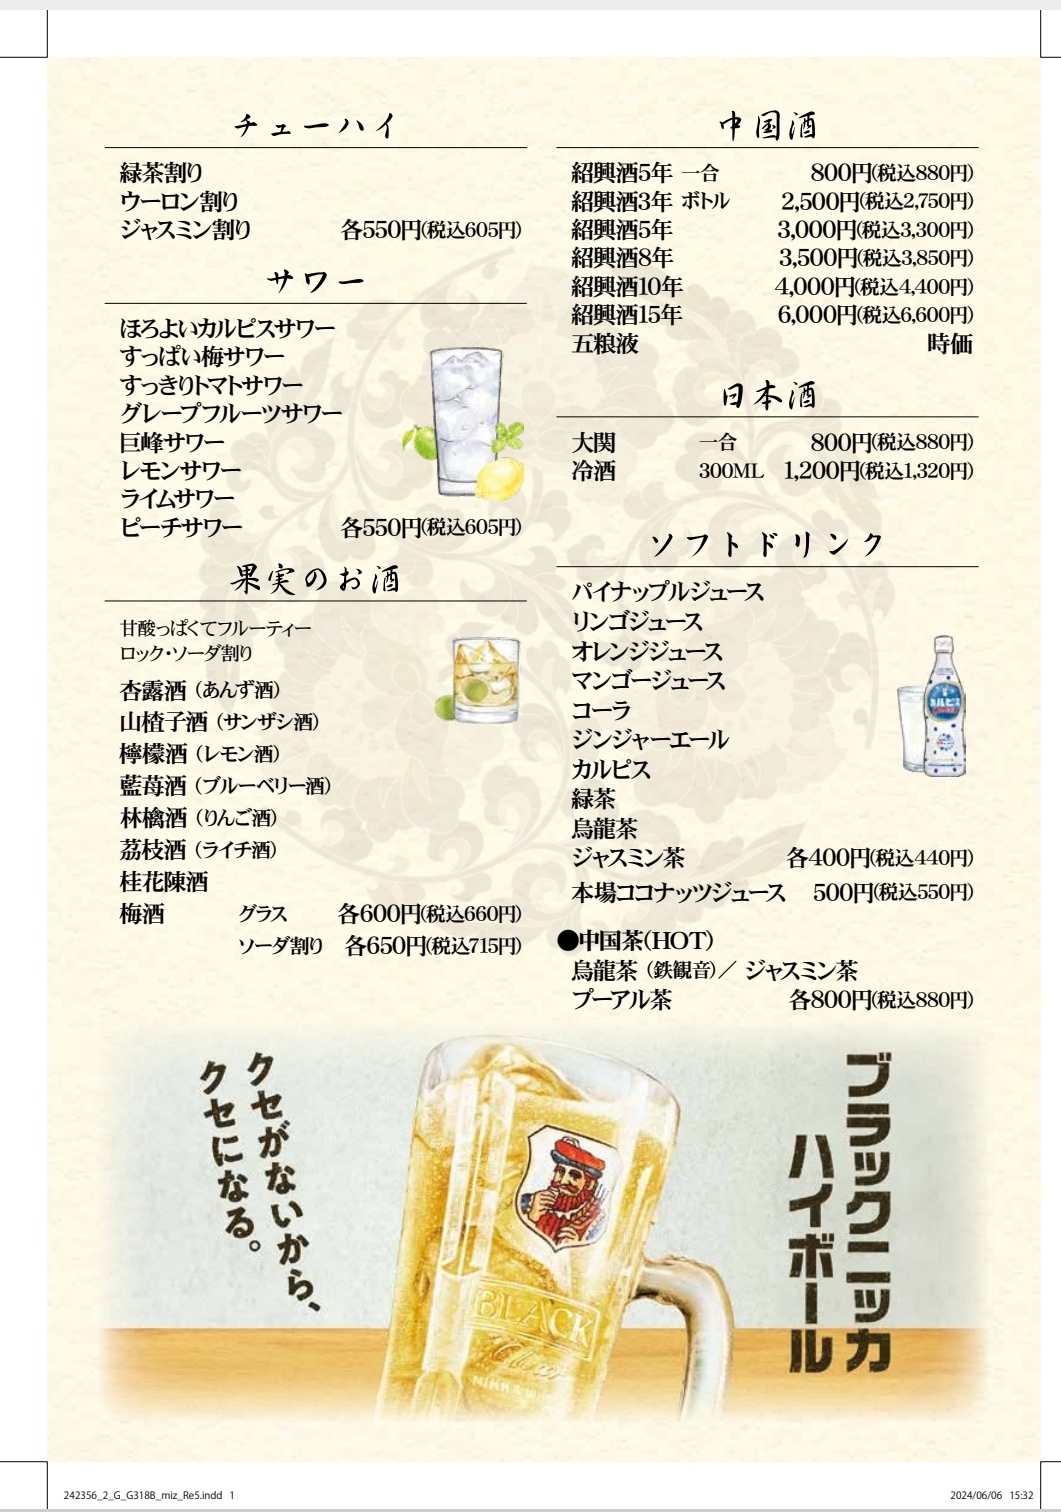 チューハイ
緑茶割り
ウーロン割り
ジャスミン割り 各550円(税込605円)
サワー
ほろよいカルピスサワー
すっぱい梅サワー
すっきりトマトサワー
グレープフルーツサワー
巨峰サワー
レモンサワー
ライムサワー
ピーチサワー 各550円(税込605円)
果実のお酒
甘酸っぱくてフルーティー
ロック・ソーダ割り
杏露酒（あんず酒）
山楂子酒（サンザシ酒）
檸檬酒（レモン酒）
藍苺酒（ブルーベリー酒）
林檎酒（りんご酒）
茘枝酒（ライチ酒）
桂花陳酒
梅酒 グラス 各600円(税込660円)
ソーダ割り 各650円(税込715円)
中国酒
紹興酒5年 一合 800円(税込880円)
紹興酒3年 ボトル 2,500円(税込2,750円)
紹興酒5年 3,000円(税込3,300円)
紹興酒8年 3,500円(税込3,850円)
紹興酒10年 4,000円(税込4,400円)
紹興酒15年 6,000円(税込6,600円)
五粮液 時価
日本酒
大関 一合 800円(税込880円)
冷酒 300ML 1,200円(税込1,320円)
ソフトドリンク
パイナップルジュース
リンゴジュース
オレンジジュース
マンゴージュース
コーラ
ジンジャーエール
カルピス
緑茶
烏龍茶
ジャスミン茶 各400円(税込440円)
本場ココナッツジュース 500円(税込550円)
●中国茶(HOT)
烏龍茶（鉄観音）／ ジャスミン茶
プーアル茶 各800円(税込880円)
カルピス
ブラックニッカ
ハイボール
クセがないから、
クセになる。
BLACK
Clear
242356_2_G_G318B_miz_Re5.indd 1
2024/06/06 15:32